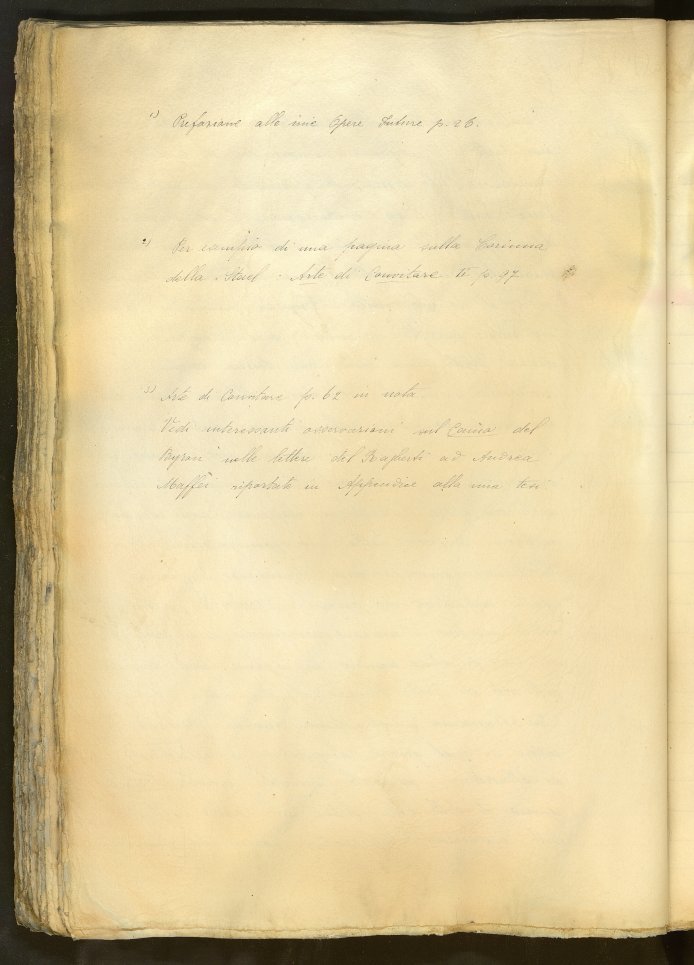 1) Prefazione alle mie Opere Future p. 26.
2) Per esempio di una pagina sulla Corinna
della Stael. Arte di Convitare II p. 97
3) Arte di Convitare p. 62 in nota.
Vedi interessanti osservazioni sul Caino del
Byron nelle lettere del Rajberti ad Andrea
Maffei riportate in Appendice alla mia tesi.